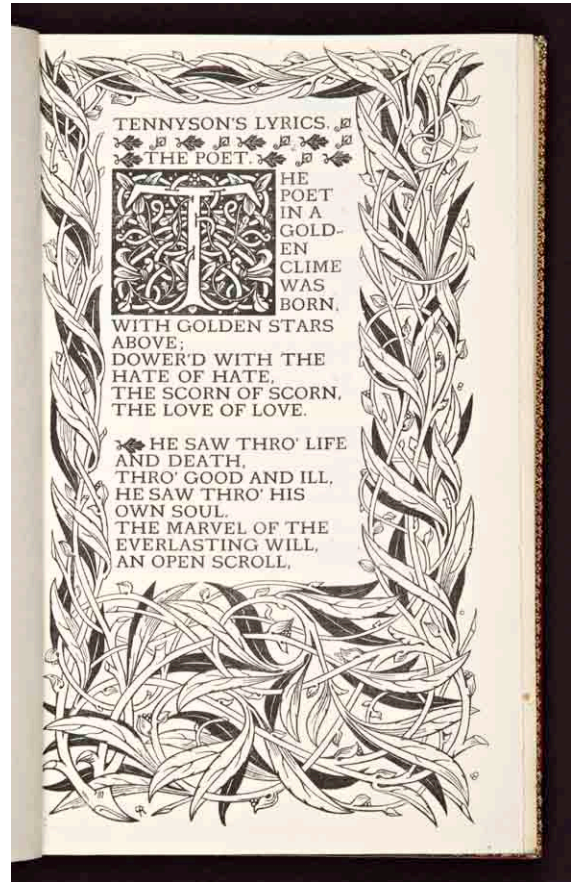 TENNYSON'S LYRICS.
THE POET.
THE
POET
IN A
GOLD-
EN
CLIME
WAS
BORN,
WITH GOLDEN STARS
ABOVE;
DOWER'D WITH THE
HATE OF HATE,
THE SCORN OF SCORN,
THE LOVE OF LOVE.
HE SAW THRO' LIFE
AND DEATH,
THRO' GOOD AND ILL,
HE SAW THRO' HIS
OWN SOUL.
THE MARVEL OF THE
EVERLASTING WILL,
AN OPEN SCROLL,